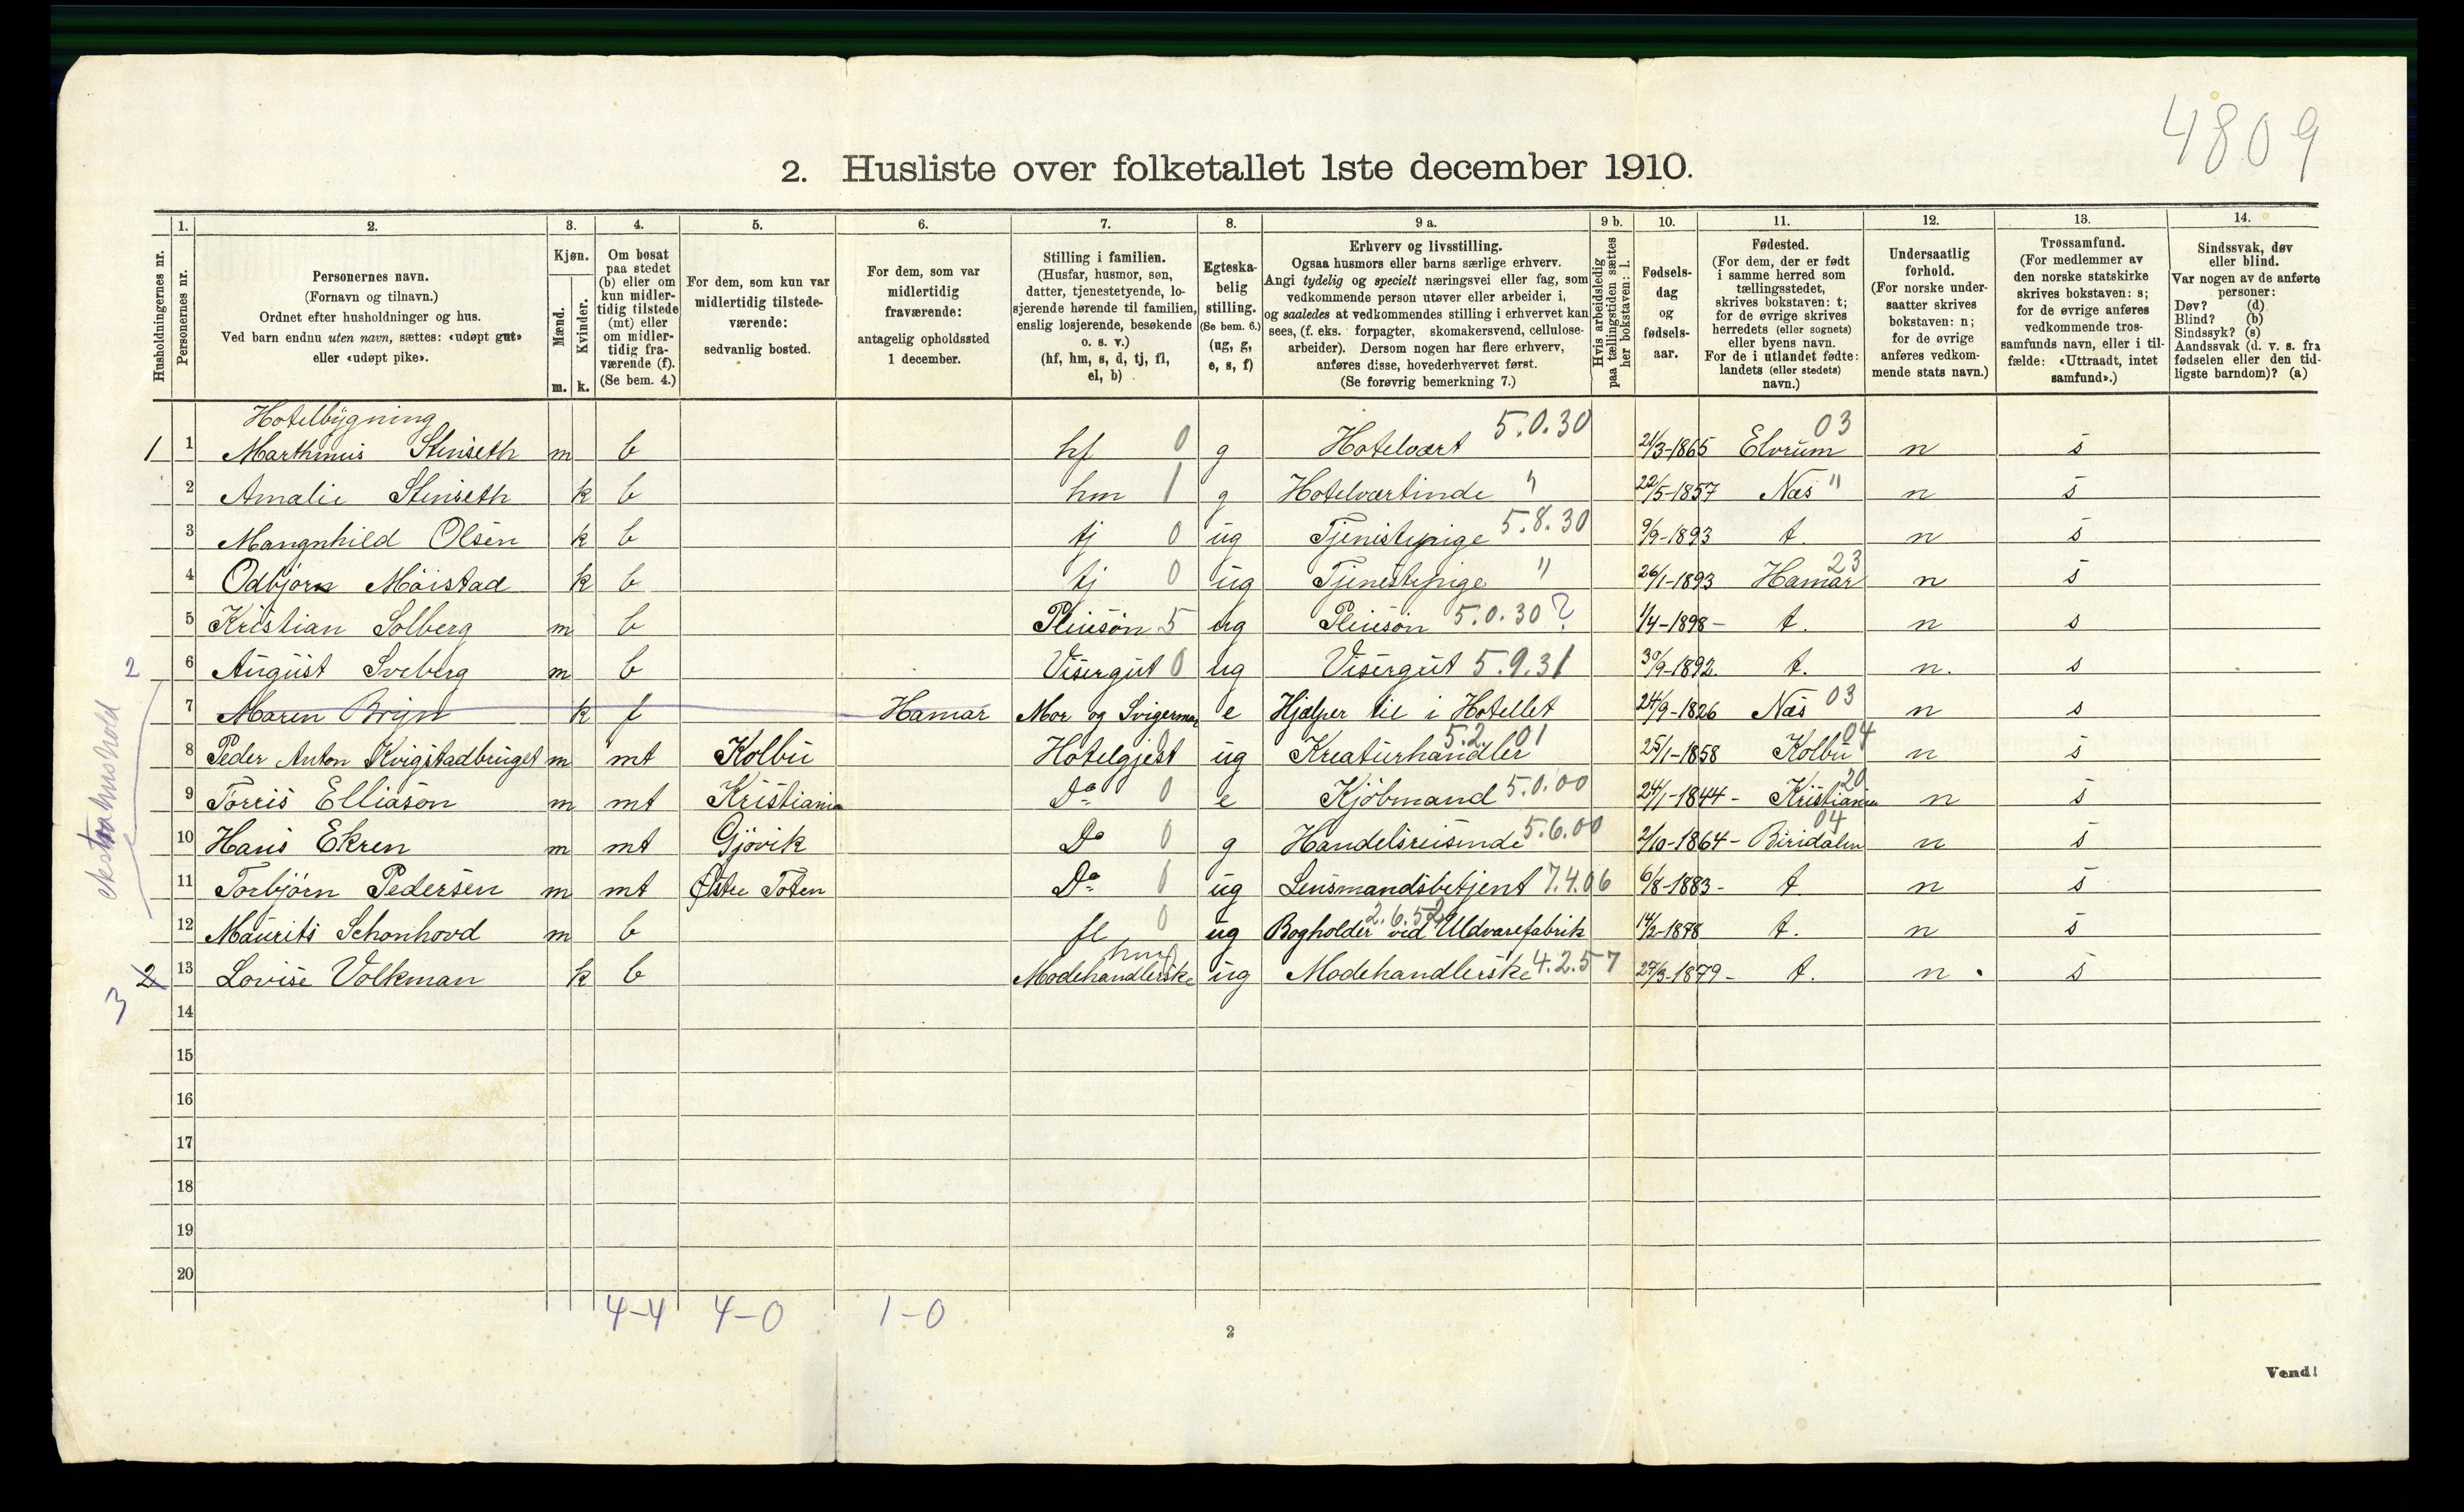 4809
2. Husliste over folketallet 1ste december 1910.
1. 2. 3. 4. 5. 6. 7. 8. 9 a. 9 b. 10. 11. 12. 13. 14.
Husholdningernes nr.
Personernes nr.
Personernes navn.
(Fornavn og tilnavn.)
Ordnet efter husholdninger og hus.
Ved barn endnu uten navn, sættes: «udøpt gut»
eller «udøpt pike».
Kjøn.
Mænd.
Kvinder.
m. k.
Om bosat
paa stedet
(b) eller om
kun midler-
tidig tilstede
(mt) eller
om midler-
tidig fra-
værende (f).
(Se bem. 4.)
For dem, som kun var
midlertidig tilstede-
værende:
sedvanlig bosted.
For dem, som var
midlertidig
fraværende:
antagelig opholdssted
1 december.
Stilling i familien.
(Husfar, husmor, søn,
datter, tjenestetyende, lo-
sjerende hørende til familien,
enslig losjerende, besøkende
o. s. v.)
(hf, hm, s, d, tj, fl,
el, b)
Egteska-
belig
stilling.
(Se bem. 6.)
(ug, g,
e, s, f)
Erhverv og livsstilling.
Ogsaa husmors eller barns særlige erhverv.
Angi tydelig og specielt næringsvei eller fag, som
vedkommende person utøver eller arbeider i,
og saaledes at vedkommendes stilling i erhvervet kan
sees, (f. eks. forpagter, skomakersvend, cellulose-
arbeider). Dersom nogen har flere erhverv,
anføres disse, hovederhvervet først.
(Se forøvrig bemerkning 7.)
Hvis arbeidsledig
paa tællingstiden sættes
her bokstaven: l.
Fødsels-
dag
og
fødsels-
aar.
Fødested.
(For dem, der er født
i samme herred som
tællingsstedet,
skrives bokstaven: t;
for de øvrige skrives
herredets (eller sognets)
eller byens navn.
For de i utlandet fødte:
landets (eller stedets)
navn.)
Undersaatlig
forhold.
(For norske under-
saatter skrives
bokstaven: n;
for de øvrige
anføres vedkom-
mende stats navn.)
Trossamfund.
(For medlemmer av
den norske statskirke
skrives bokstaven: s;
for de øvrige anføres
vedkommende tros-
samfunds navn, eller i til-
fælde: «Uttraadt, intet
samfund».)
Sindssvak, døv
eller blind.
Var nogen av de anførte
personer:
Døv? (d)
Blind? (b)
Sindssyk? (s)
Aandssvak (d. v. s. fra
fødselen eller den tid-
ligste barndom)? (a)
Hotelbygning
1 1 Marthinus Stenseth m b hf 0 g Hotelvært 5.0.30 21/3-1865 Elvrum 03 n s
2 Amalie Stenseth k b hm 1 g Hotelværtinde " 22/5-1857 Næs " n s
3 Mangnhild Olsen k b tj 0 ug Tjenistepige 5.8.30 9/9-1893 t. n s
4 Odbjørn Möistad k b tj 0 ug Tjenestepige " 26/1-1893 Hamar 23 n s
5 Kristian Solberg m b Pleiesön 5 ug Pleiesön 5.0.30 ? 1/4-1898- t. n s
2 6 August Sveberg m b Visergut 0 ug Visergut 5.9.31 30/9-1892. t. n. s
7 Maren Bryn k f Hamar Mor og Svigermor e Hjælper til i Hotellet 24/9-1826 Næs 03 n s
8 Peder Anton Kvigstadbruget m mt Kolbu Hotelgjest ug Kreaturhandler 5.2.01 25/1-1858 Kolbu 04 n s
9 Torris Elliason m mt Kristiania Do 0 e Kjöbmand 5.0.00 24/1-1844- Kristiania 20 n s
10 Hans Ekren m mt Gjövik Do 0 g Handelsreisende 5.6.00 2/10-1864- Biridalen 04 n s
11 Torbjörn Pedersen m mt Østre Toten Do 0 ug Lensmandsbetjent 7.4.06 6/8-1883- t n s
12 Maurits Schonhovd m b fl 0 ug Bogholder ved Uldvarefabrik 14/2-1878 t. n s
2 13 Lovise Volkman k b Modehandlerske ug Modehandlerske 4.2.57 27/3-1879- t. n s
3
14
15
16
17
18
19
20
4-4 4-0 1-0
2
Vend!